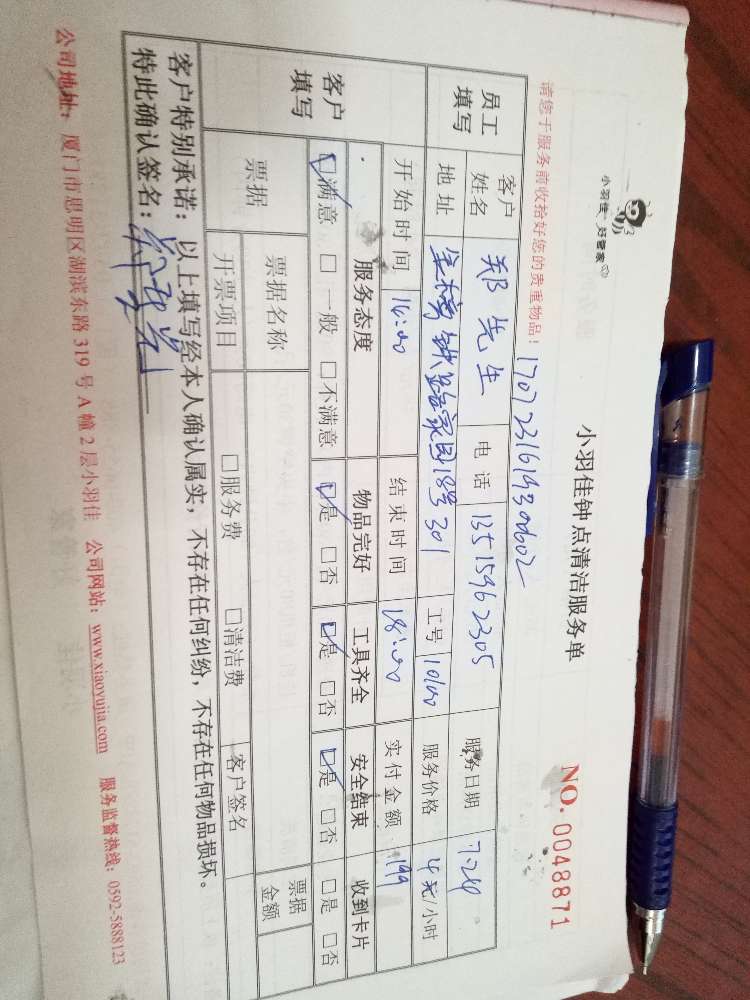 小羽佳·好管家
小羽佳钟点清洁服务单
NO. 0048871
请您于服务前收拾好您的贵重物品！
员工填写 客户姓名 郑先生 电话 13515962305 服务日期 7.24
地址 铁路家园18号301 工号 服务价格 4 元/小时
客户填写 开始时间 14:00 结束时间 18:00 实付金额 199
服务态度 物品完好 工具齐全 安全结束 收到卡片
☑满意 □一般 □不满意 ☑是 □否 ☑是 □否 ☑是 □否 □是 □否
票据 票据名称 □服务费 □清洁费 客户签名 票据金额
开票项目
客户特别承诺：以上填写经本人确认属实，不存在任何纠纷，不存在任何物品损坏。
特此确认签名：
公司地址：厦门市思明区湖滨东路 319 号 A 幢 2 层小羽佳 公司网站：www.xiaoyujia.com 服务监督热线：0592-5888123